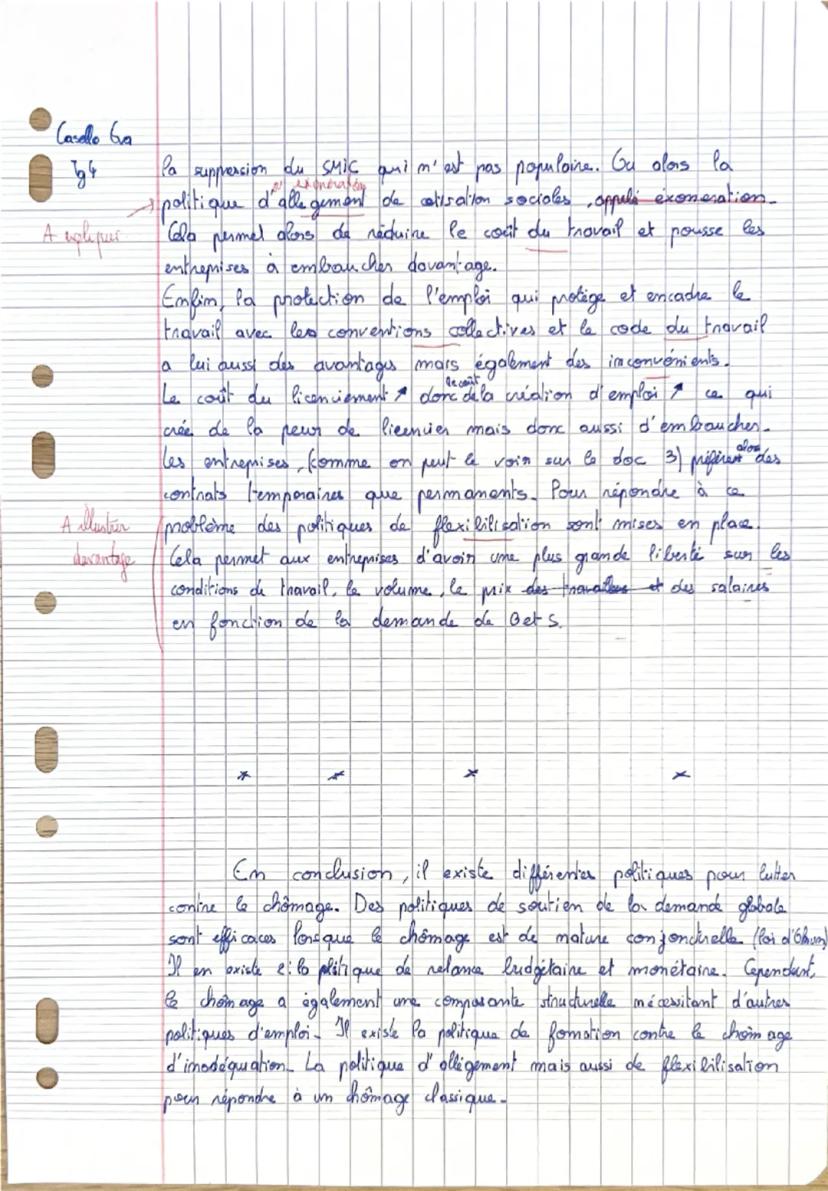 Casello Eva
Tg4
la suppression du SMIC qui n'est pas populaire. Ou alors la
et exonération
politique d'allegement de cotisation sociales, appelé exoneration.
A expliquer
Cela permet alors de réduire le coût du travail et pousse les
entreprises à embaucher davantage.
Enfin, la protection de l'emploi qui protège et encadre le
travail avec les conventions collectives et le code du travail
a lui aussi des avantages mais également des inconvénients.
Le coût du licenciement ↗ donc le coût de la création d'emploi ↗ ce qui
crée de la peur de licencier mais donc aussi d'embaucher.
Les entreprises, (comme on peut le voir sur le doc 3) préfèrent alors des
contrats temporaires que permanents. Pour répondre à ce
A illustrer
davantage
problème des politiques de flexibilisation sont mises en place.
Cela permet aux entreprises d'avoir une plus grande liberté sur les
conditions de travail, le volume, le prix des travailleurs et des salaires
en fonction de la demande de B et S.
* * * *
En conclusion, il existe différentes politiques pour lutter
contre le chômage. Des politiques de soutien de la demande globale
sont efficaces lorsque le chômage est de nature conjoncturelle (loi d'Okun)
Il en existe 2 : la politique de relance budgétaire et monétaire. Cependant,
le chômage a également une composante structurelle nécessitant d'autres
politiques d'emploi. Il existe la politique de formation contre le chômage
d'inadéquation. La politique d'allégement mais aussi de flexibilisation
pour répondre à un chômage classique.